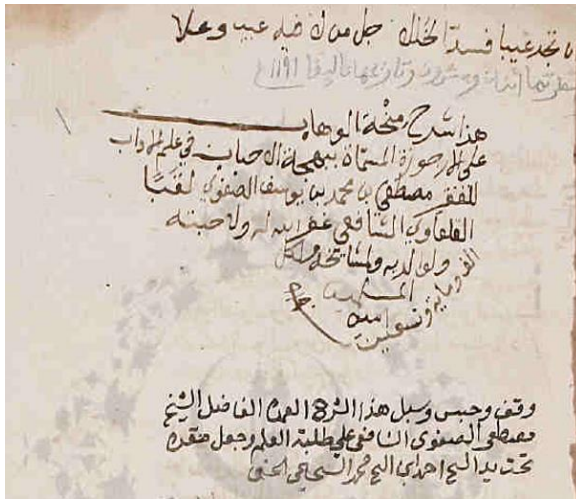 ان تجد عيبا فسد الخللا جل من لا فيه عيب وعلا
١١٩١
هذا شرح منحة الوهاب
على الارجوزة المسماة ببهجة الاحباب في علم الاداب
للفقير مصطفى بن محمد بن يوسف الصفوي لقبا
القلعاوي الشافعي غفر الله له ولاحبته
ولوالديه ولمشايخه ولكل
المسلمين
امين
وقف وحبس وسبل هذا الشرح العمدة الفاضل الشيخ
مصطفى الصفوى الشافعي علي طلبة العلم وجعل مقره
تحت يد الشيخ احمد ابن الشيخ محمد الحنفي